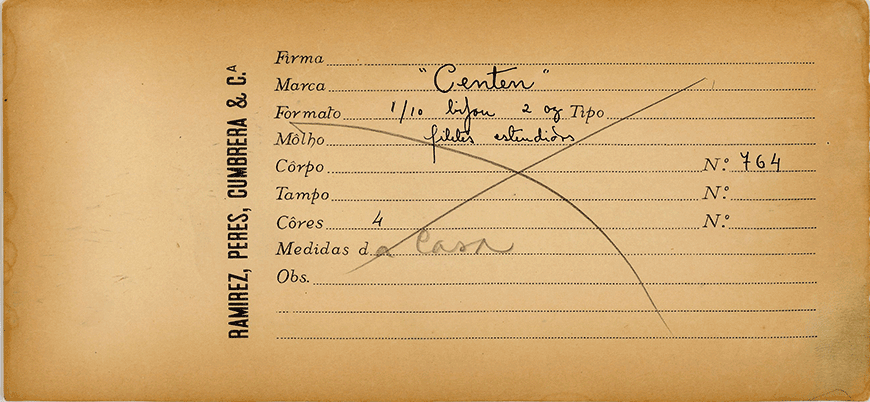 RAMIREZ, PERES, CUMBRERA & C.ᴬ
Firma
Marca "Centen"
Formato 1/10 bijou 2 oz Tipo
Môlho filetes estendidos
Côrpo N.º 764
Tampo N.º
Côres 4 N.º
Medidas da Casa
Obs.